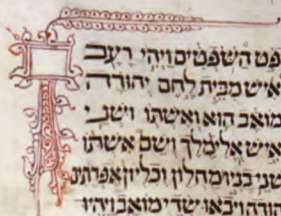 פט השפטים ויהי רעב
איש מבית לחם יהודה
מואב הוא ואשתו ושני
איש אלימלך ושם אשתו
שני בניו מחלון וכליון אפרתים
הודה ויבאו שדי מואב ויהיו